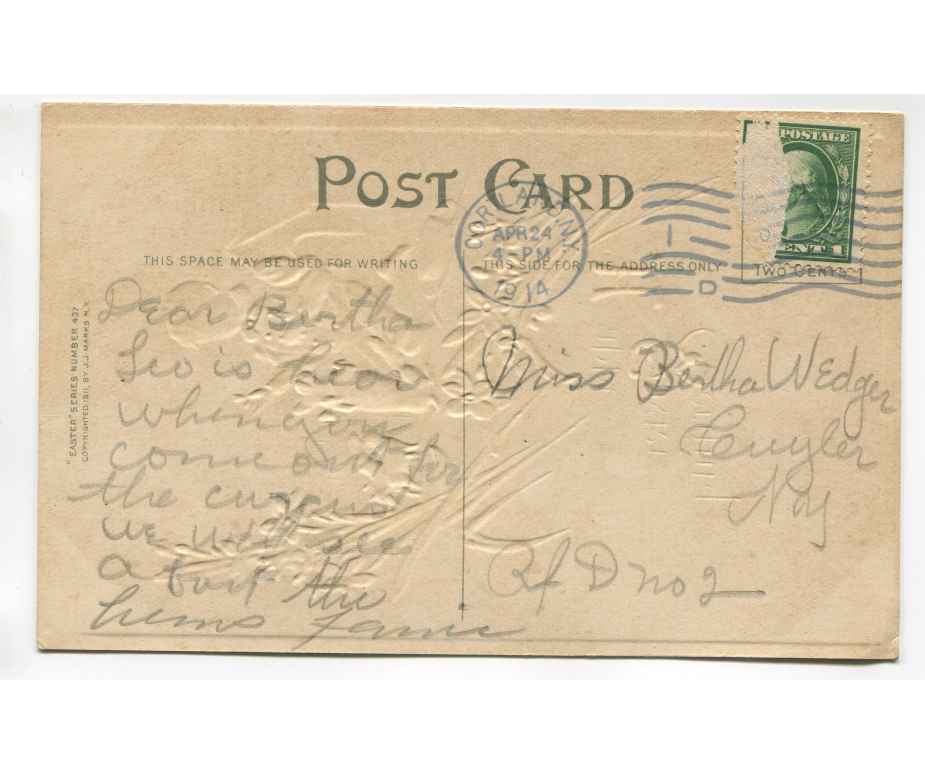 POST CARD
CORTLAND N.Y.
APR 24
4-PM
1914
POSTAGE
CENT 1
TWO CENTS
D
THIS SPACE MAY BE USED FOR WRITING
THIS SIDE FOR THE ADDRESS ONLY
"EASTER" SERIES NUMBER 437
COPYRIGHTED 1911, BY J.J. MARKS N.Y.
Dear Bertha
Leo is hear
when you
come out for
the
we will see
a bout the
hens
Miss Bertha Wedger
Cuyler
N y
Rf D no 2